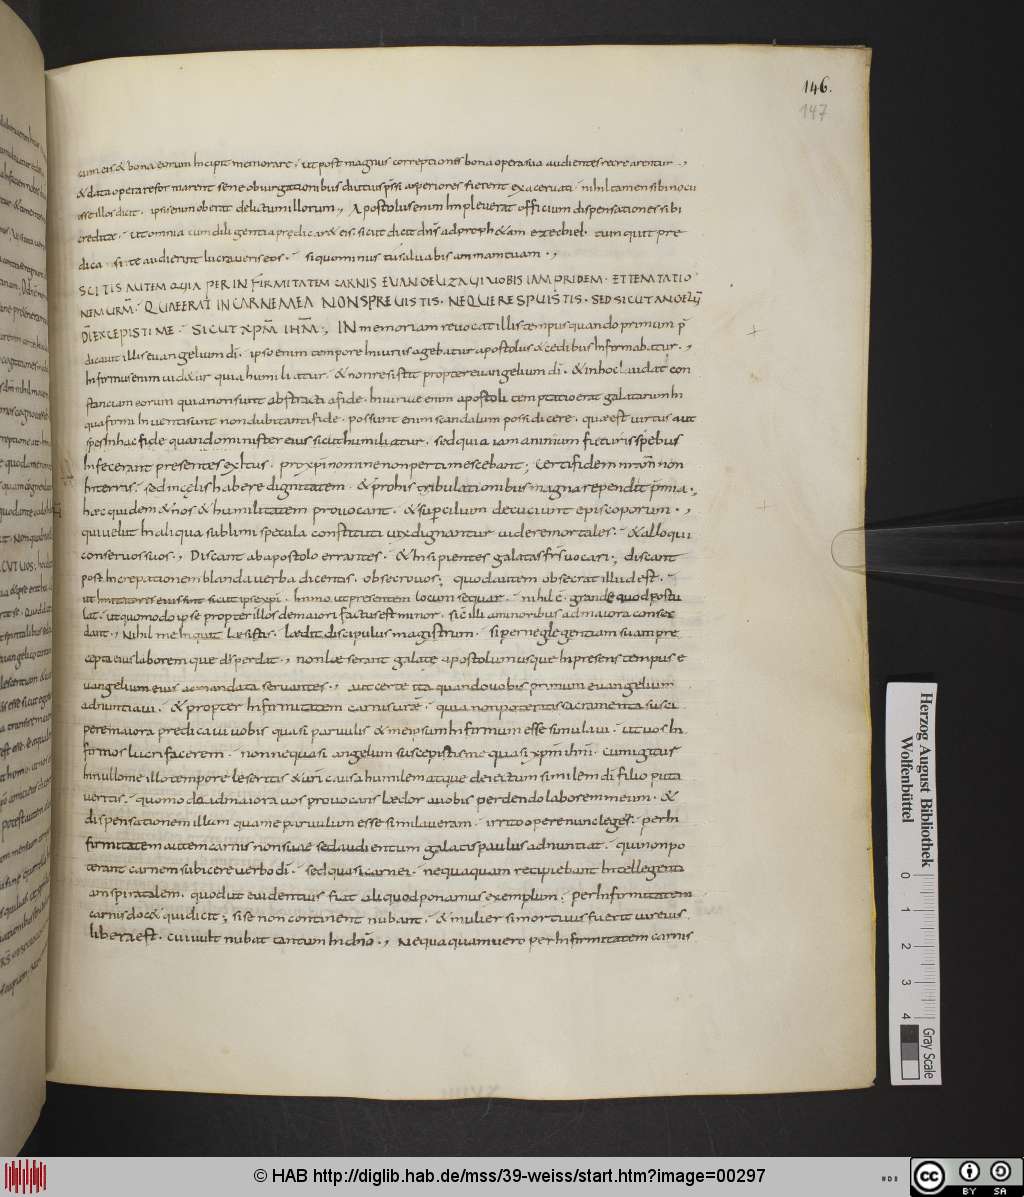 146.
147
cum eis & bona eorum incipit memorare; ut post magnus correptiones bona opera sua audientes recrearentur.,
esse illos dicit. ipsi enim oberat delictum illorum., Apostolus enim impleverat officium dispensationes sibi
credite. ut omnia cum diligentia predicar& eis. sicut dicit dn̄s ad proph&am ezechiel. cum quit pre
dica. si te audierint lucraveris eos. si quominus tu salvabis animam tuam.,
SCITIS AUTEM QUIA PER INFIRMITATEM CARNIS EVANGELIZAVI VOBIS IAM PRIDEM. ET TEMTATIO
NEM URM̄. QUAE ERAT IN CARNE MEA NON SPREUISTIS. NEQUE RESPUISTIS. SED SICUT ANGELŪ
DĪ EXCEPISTI ME. SICUT XPM̄ IHM̄; IN memoriam revocat illis tempus quando primum p̄
dicavit illis euangelium dī. ipso enim tempore iniurius agebatur apostolus & cedibus infirmabatur.,
Infirmus enim uid&ur quia humiliatur. & non resistit propter euangelium dī. & in hoc laudat con
stanciam eorum quia non sunt abstracti a fide. Iniuriae enim apostoli temptatio erat galatarum In
qua firmi Inventi sunt non dubitanti fide. possunt enim scandalum possi dicere. quae est virtus aut
spes In hac fide quando minister eius sic ut humiliatur. sed quia iam animum futuris spebus
Infecerant presentes exitus. pro xp̄i nomine non pertimescebant; Certi fidem
In terris. sed in cęlis habere dignitatem. & p̄ro his tribulationibus magna rependit p̄mia.,
haec quidem & nos & humilitatem provocant. & sup̄cilium decutiunt episcoporum.,
qui velut In aliqua sublimi specula constituti vix dignantur videre mortales. & alloqui
conservos suos., Discant ab apostolo errantes. & Insipientes galatas frs̄ vocari; discant
post Increpationem blanda verba dicentis. obsecro vos; quod autem obsecrat illud est.
ut Imitatoris eius sint sicut ipse xp̄i. Immo ut presentem locum sequar. nihil ē. grande quod postu
lat. ut quomodo ipse propter illos de maiori factus est minor. sic illi a minoribus ad maiora conscen
dant., Nihil me Inquit Lesistis. Lædit discipulus magistrum. si per neglegentiam suam pre
cepta eius laborem que disperdat., non læserant galatę apostolum usque In presens tempus e
vangelium eius ac mandata servantes., aut certe ita quando vobis primum euangelium
adnuntiavi. & propter Infirmitatem carnis uræ. quia non poteratis sacramenta susci
pere maiora predicavi vobis quasi parvulis & meipsum Infirmum esse simulavi. ut vos In
firmos lucrifacerem. non ne quasi angelum suscepistis me quasi xpm̄ ihm̄. cum igitur
In nullo me illo tempore leseritis & uri causa humilem atque deiectum similem dī filio puta
veritis. quomodo ad maiora vos provocans lædor a vobis perdendo laborem meum. &
dispensationem illum qua me parvulum esse similaveram. irrito opere nunc leges. per In
firmitatem autem carnis non suae sed audientum galatis paulus adnuntiat. qui non po
terant carnem subicere verbo dī. sed quasi carnei. nequaquam recipiebant Intellegentia
am spiratalem. quod ut evidentius fiat aliquod ponamus exemplum. per Infirmitatem
carnis doc& qui dicit; si se non continent nubant. & mulier si mortuus fuerit vir eius.
libera est. cui vult nubat tantum In dn̄o., Nequaquam vero per Infirmitatem carnis
Herzog August Bibliothek
Wolfenbüttel
0 1 2 3 4
Gray Scale
© HAB http://diglib.hab.de/mss/39-weiss/start.htm?image=00297
HAB
cc BY SA